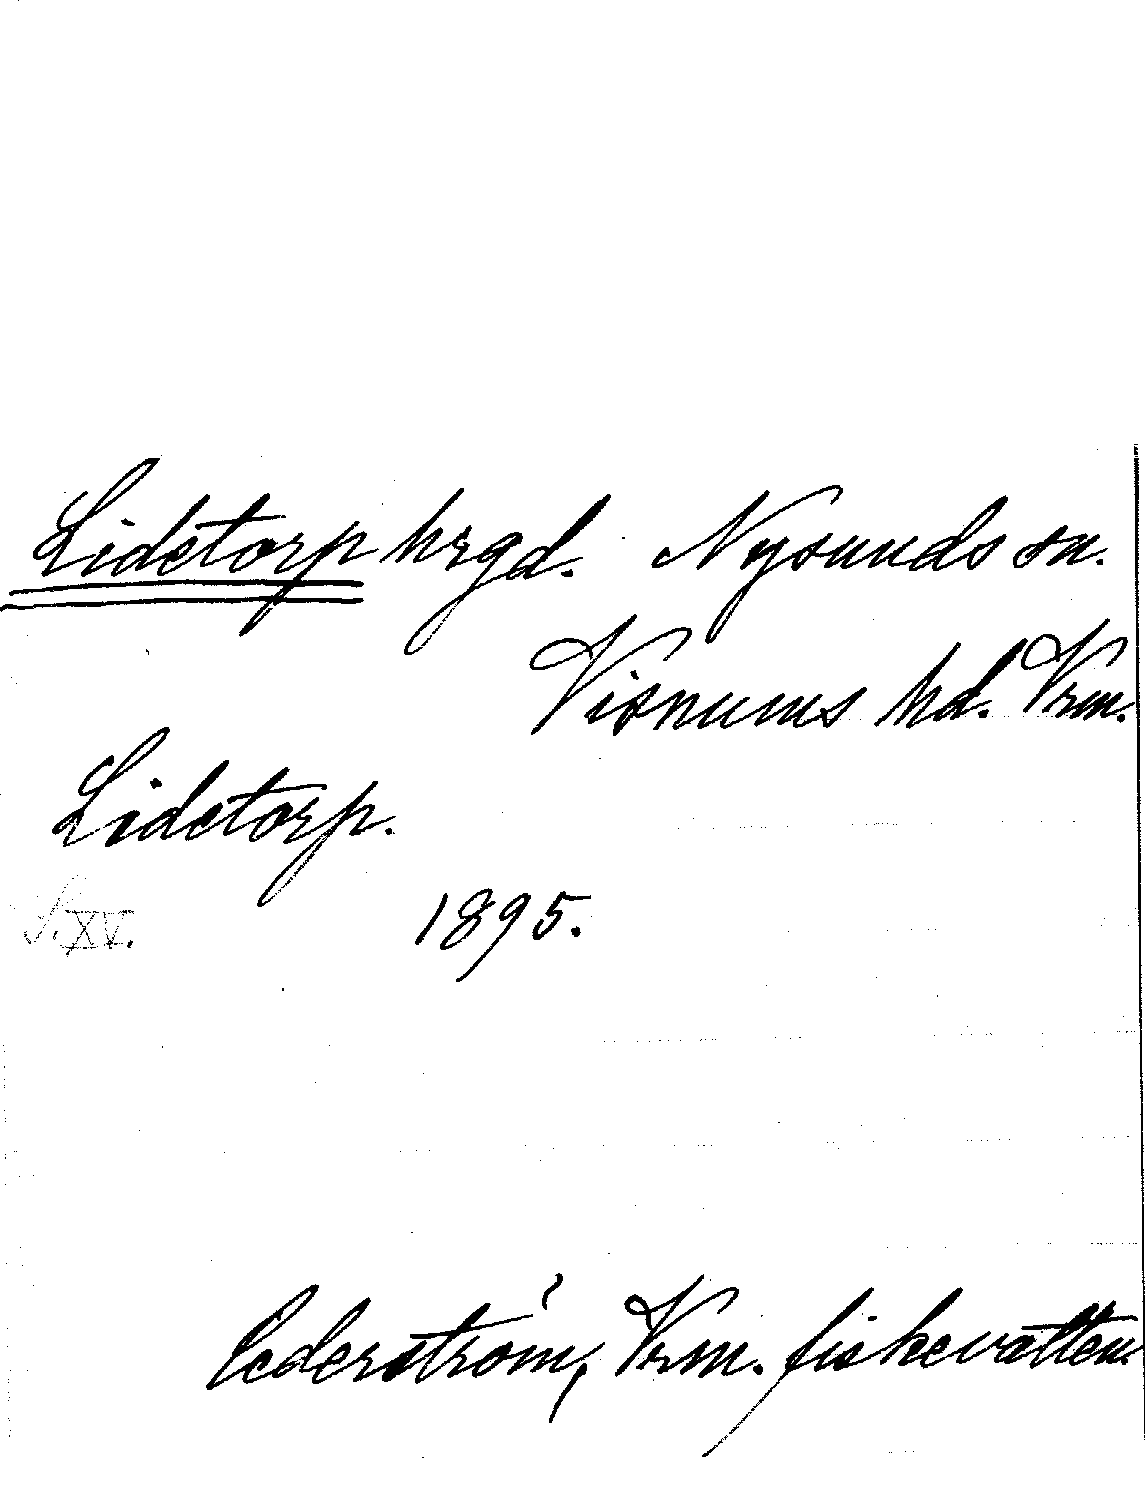 Lidetorp hrgd. Nysunds sn.
Visnums hd. Vrm.
Lidetorp.
S. XV. 1895.
Cederström, Vrm. fiskevatten.